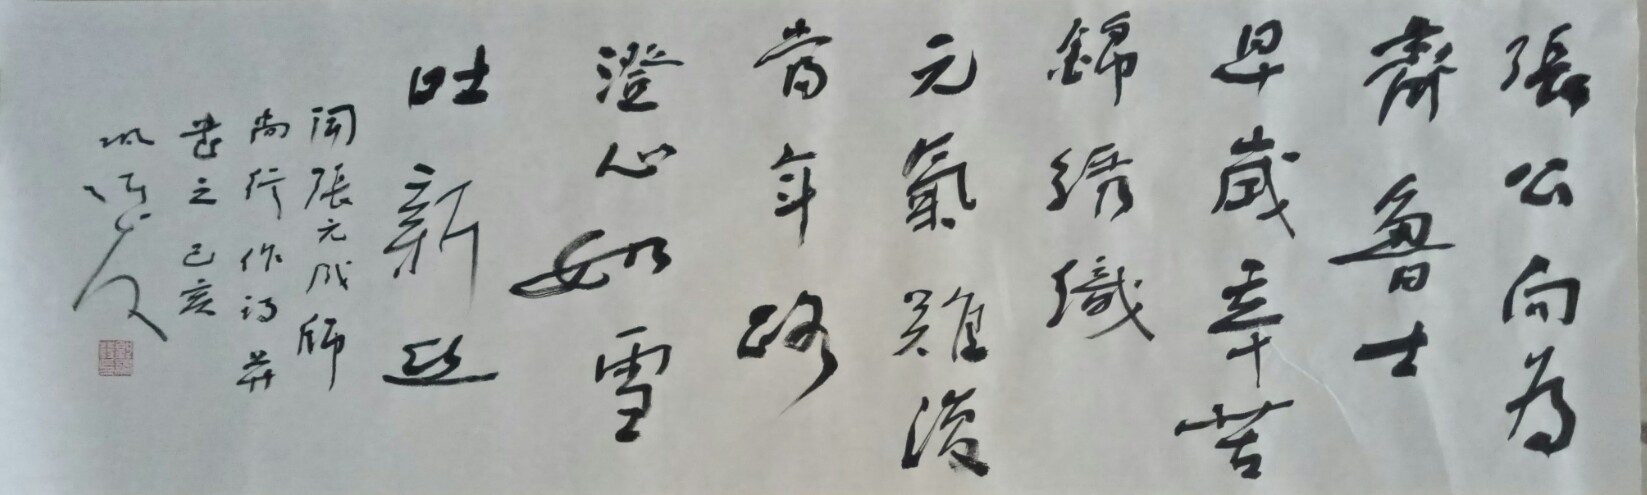 張公向為
齊魯士
早歲辛苦
錦绣織
元氣難復
當年路
澄心如雪
吐新丝
闻張元成師
尚行作詩并
書之己亥